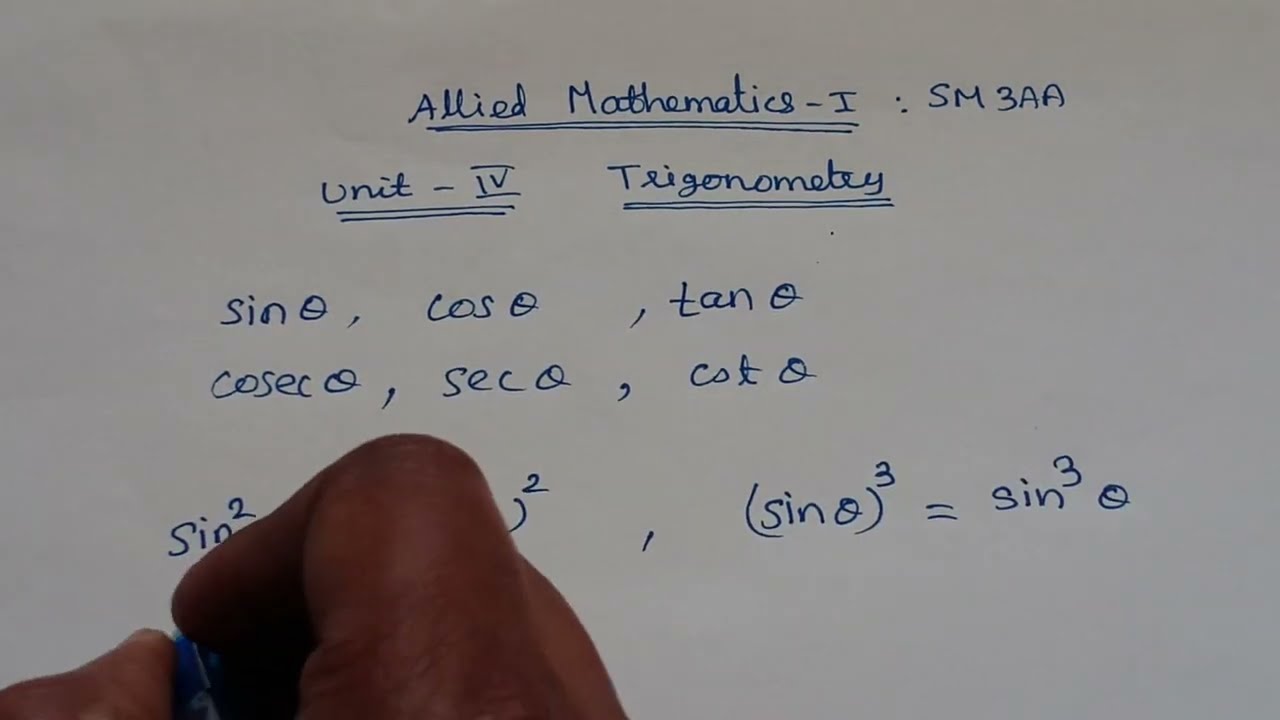 Allied Mathematics - I : SM3AA
Unit - IV Trigonometry
sin θ, cos θ, tan θ
cosec θ, sec θ, cot θ
sin² )² , (sin θ)³ = sin³ θ